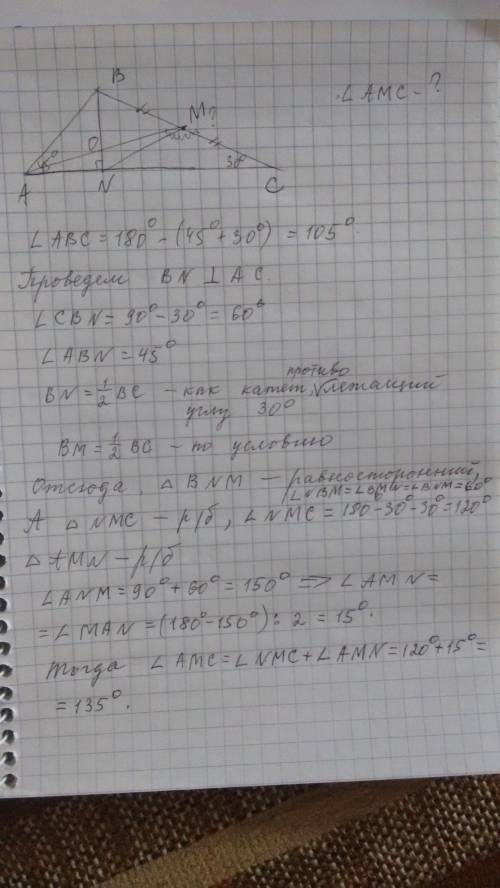 B
∠AMC - ?
M?
O
45°
30°
A
N
C
∠ABC = 180° - (45° + 30°) = 105°.
Проведем BN ⊥ AC.
∠CBN = 90° - 30° = 60°
∠ABN = 45°
BN = 1/2 BC - как катет, противолежащий
углу 30°
BM = 1/2 BC - по условию
Отсюда △BNM - равносторонний,
∠NBM = ∠BMN = ∠BNM = 60°
А △NMC - р/б, ∠NMC = 180 - 30° - 30° = 120°
△AMN - р/б
∠ANM = 90° + 60° = 150° => ∠AMN =
= ∠MAN = (180° - 150°) : 2 = 15°.
Тогда ∠AMC = ∠NMC + ∠AMN = 120° + 15° =
= 135°.